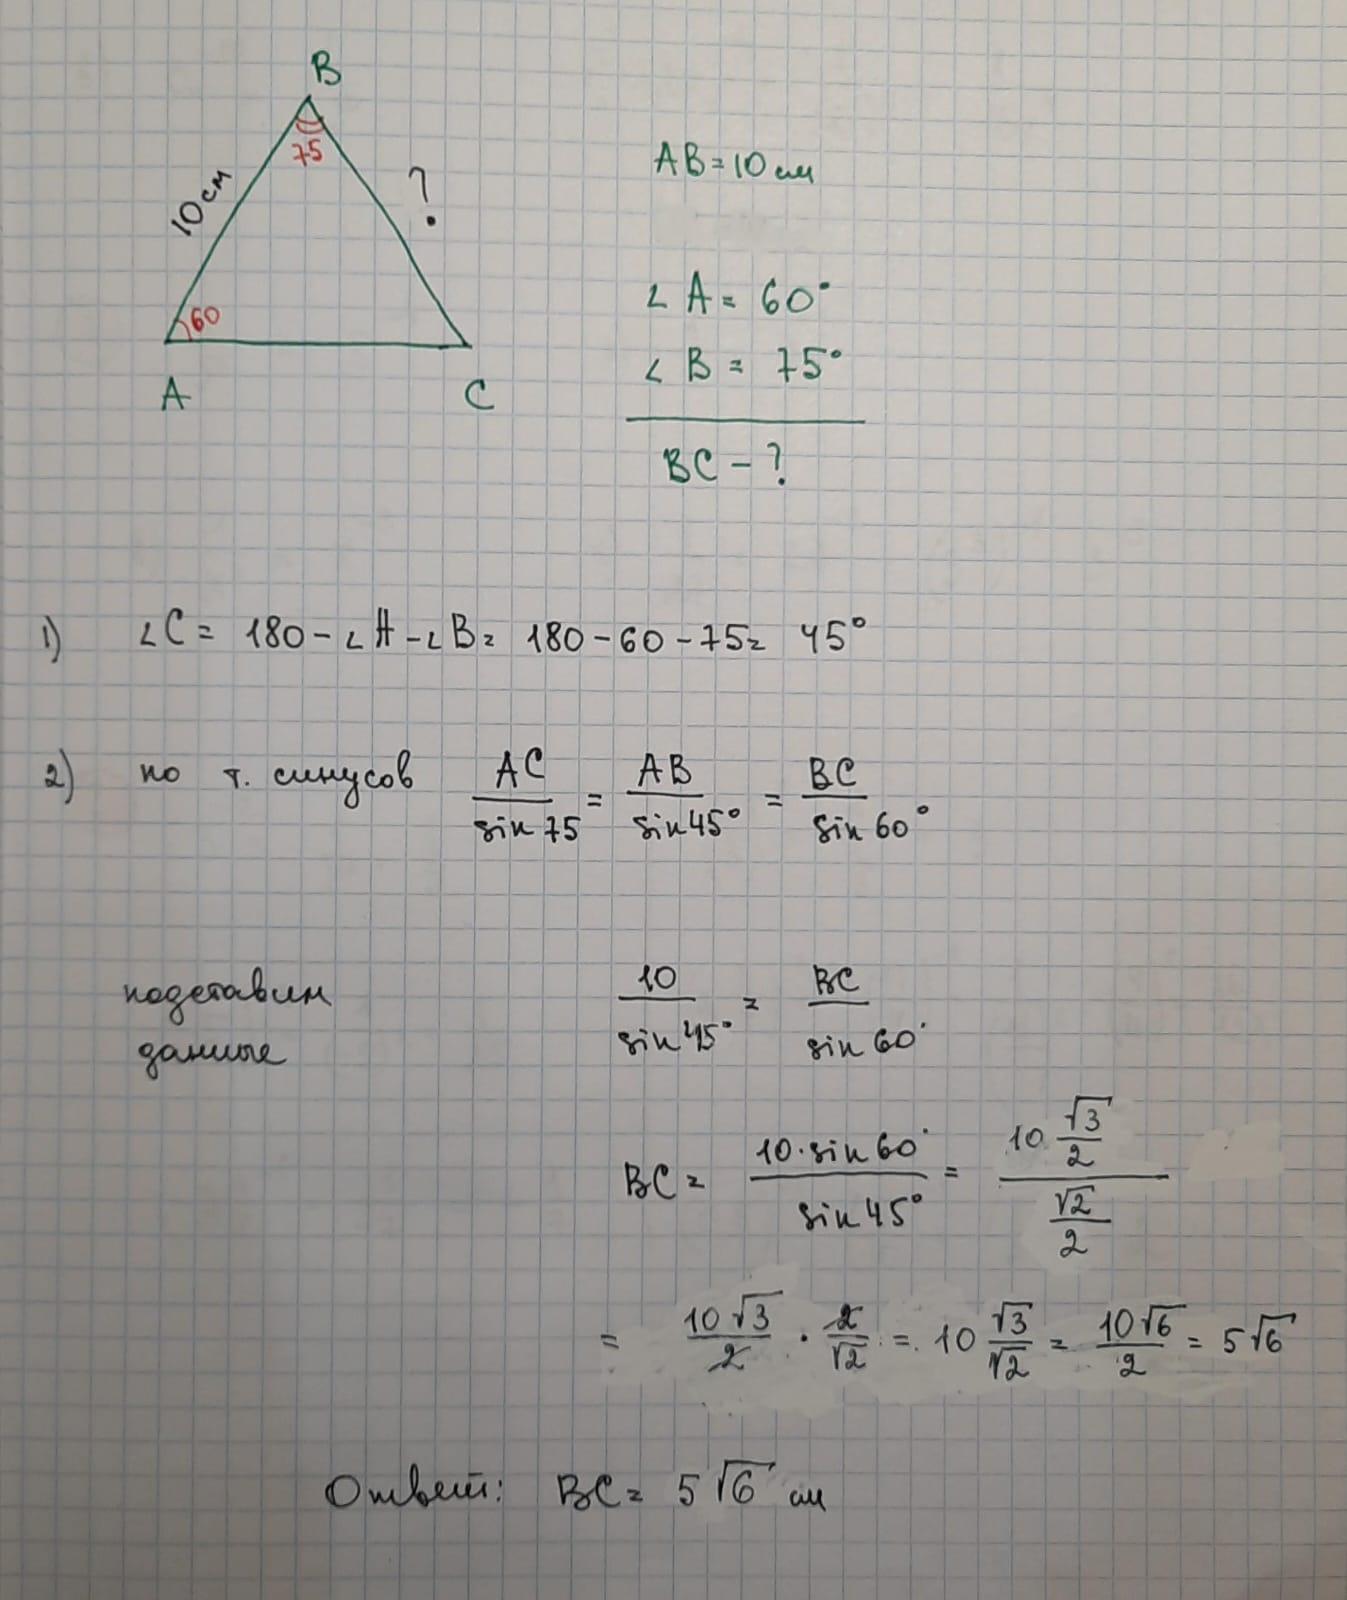 B
75
10 см
?
60
A
C
AB = 10 см
∠ A = 60°
∠ B = 75°
BC – ?
1) ∠C = 180 – ∠A – ∠B = 180 – 60 – 75 = 45°
2) по т. синусов AC/sin 75 = AB/sin 45° = BC/sin 60°
подставим
данные
10/sin 45° = BC/sin 60°
BC = (10 · sin 60°)/(sin 45°) = (10 √3/2)/(√2/2)
= 10√3/2 · 2/√2 = 10 √3/√2 = 10√6/2 = 5√6
Ответ: BC = 5√6 см